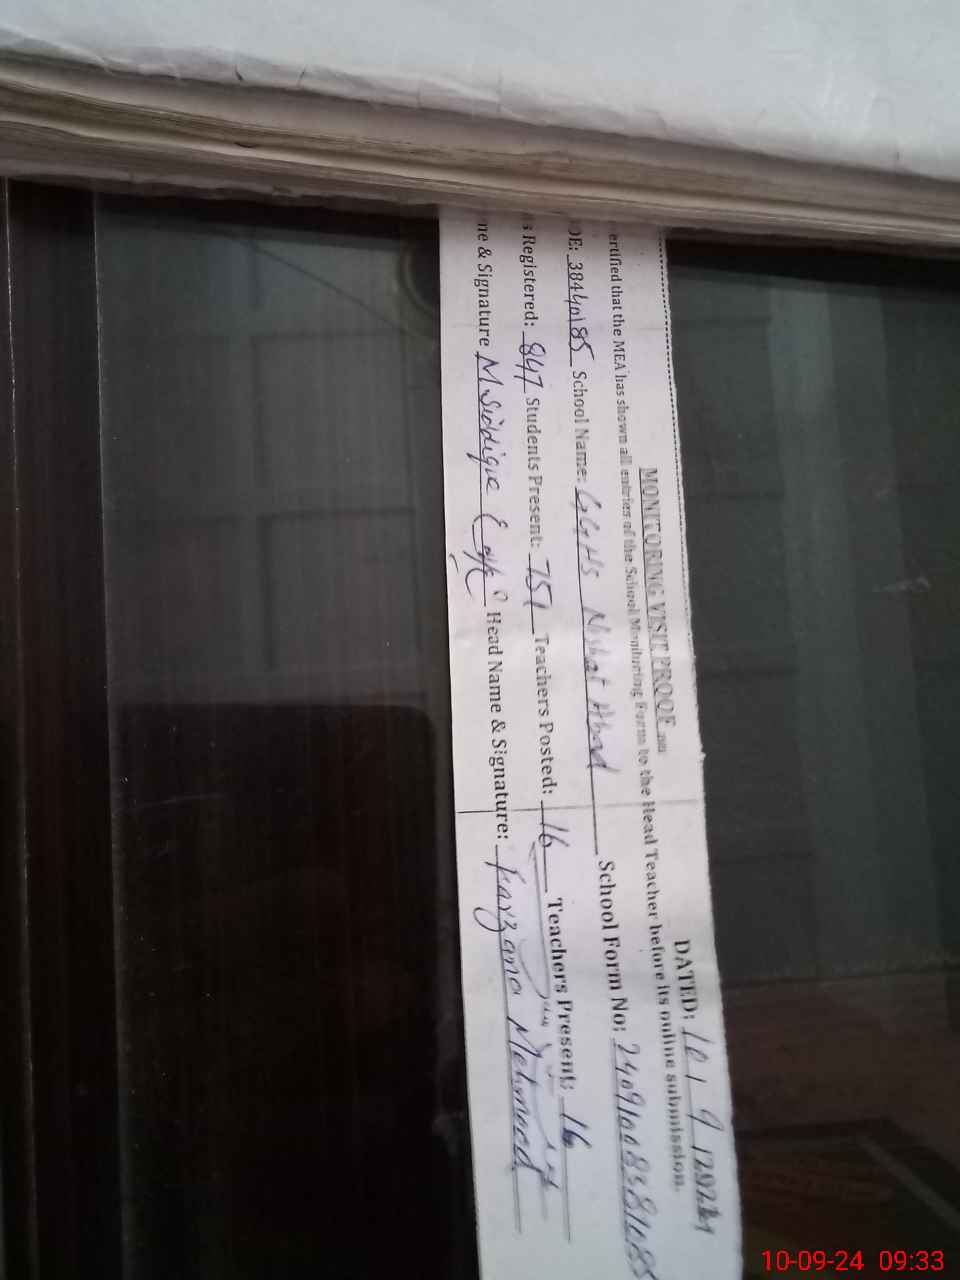 MONITORING VISIT PROOF
DATED: 10 / 9 /2024
ertified that the MEA has shown all entries of the School Monitoring Form to the Head Teacher before its online submission.
DE: 38440185 School Name: GGHS Nishat Abad School Form No:
s Registered: 847 Students Present: 751 Teachers Posted: 16 Teachers Present: 16
ne & Signature M. Siddique Head Name & Signature: Farzana Mehmood
10-09-24 09:33